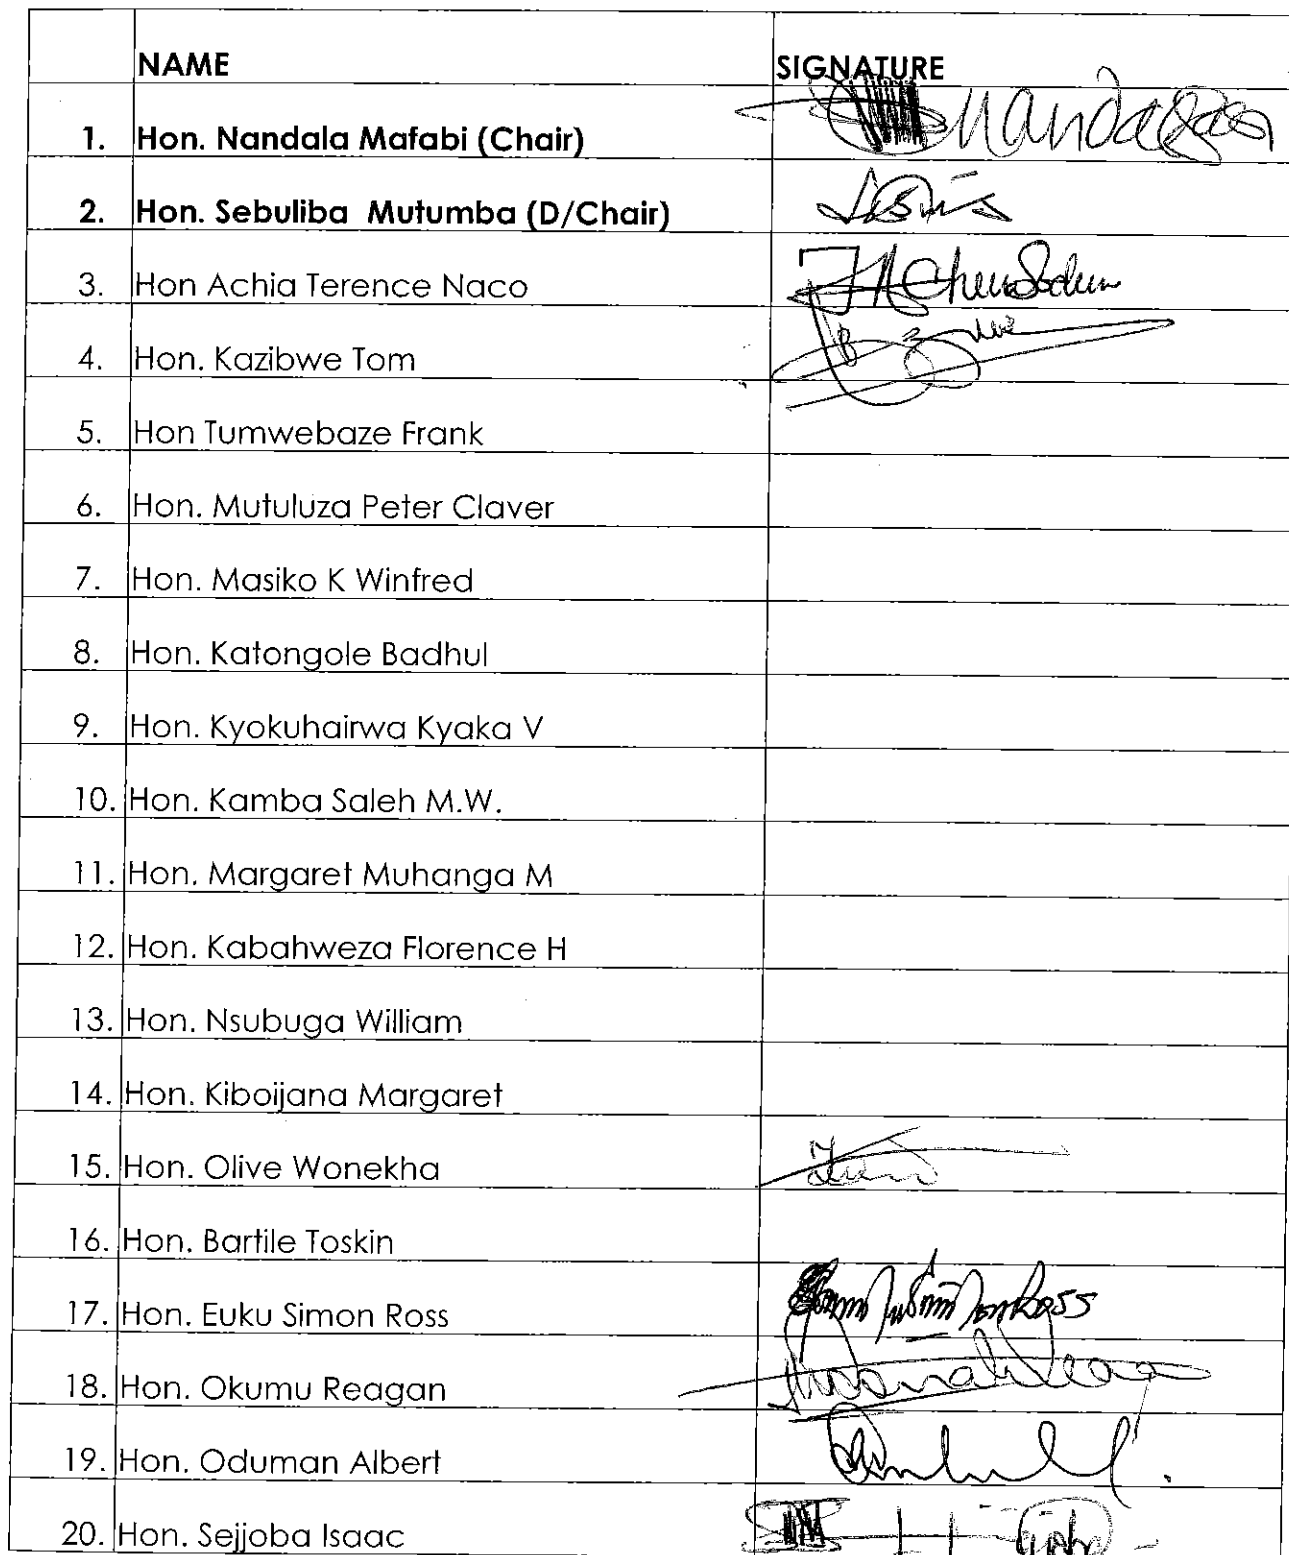 NAME SIGNATURE
1. Hon. Nandala Mafabi (Chair)
2. Hon. Sebuliba Mutumba (D/Chair)
3. Hon Achia Terence Naco
4. Hon. Kazibwe Tom
5. Hon Tumwebaze Frank
6. Hon. Mutuluza Peter Claver
7. Hon. Masiko K Winfred
8. Hon. Katongole Badhul
9. Hon. Kyokuhairwa Kyaka V
10. Hon. Kamba Saleh M.W.
11. Hon. Margaret Muhanga M
12. Hon. Kabahweza Florence H
13. Hon. Nsubuga William
14. Hon. Kiboijana Margaret
15. Hon. Olive Wonekha
16. Hon. Bartile Toskin
17. Hon. Euku Simon Ross
18. Hon. Okumu Reagan
19. Hon. Oduman Albert
20. Hon. Sejjoba Isaac